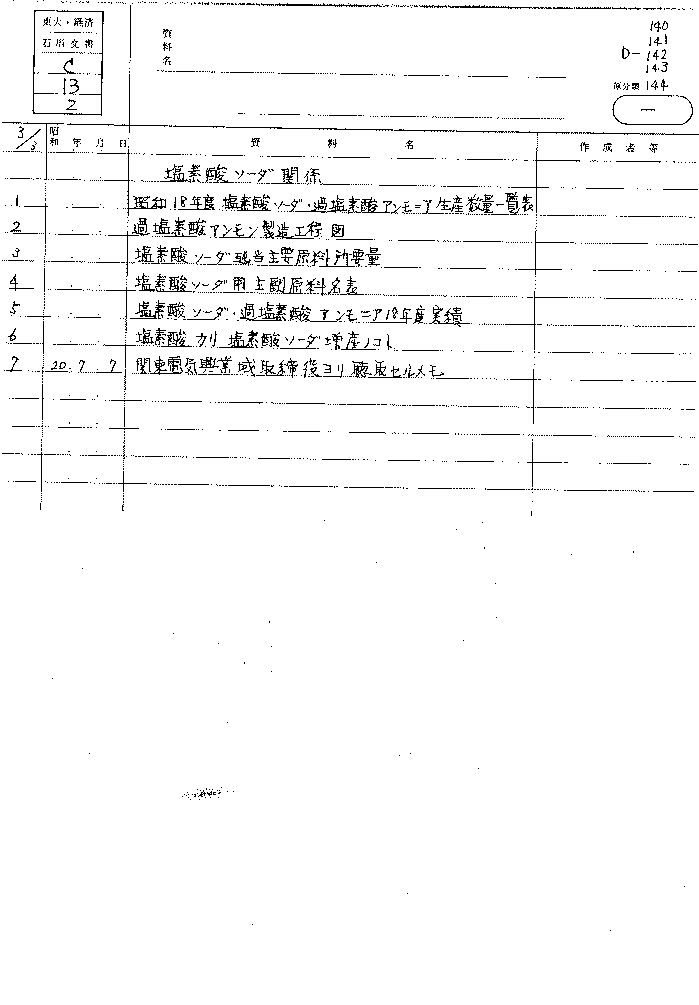 東大・経済
石川文書
C
13
2
資料名
140
141
D-142
143
原分類 144
一
3/3 昭和 年 月 日 資料名 作成者等
塩素酸ソーダ関係
1 昭和18年度 塩素酸ソーダ・過塩素酸アンモニア生産数量一覧表
2 過塩素酸アンモン製造工程図
3 塩素酸ソーダ瓲当主要原料所要量
4 塩素酸ソーダ用主副原料名表
5 塩素酸ソーダ・過塩素酸アンモニア18年度実績
6 塩素酸カリ 塩素酸ソーダ増産ノコト
7 20. 7 7 関東電気興業 取締役ヨリ聴取セルメモ